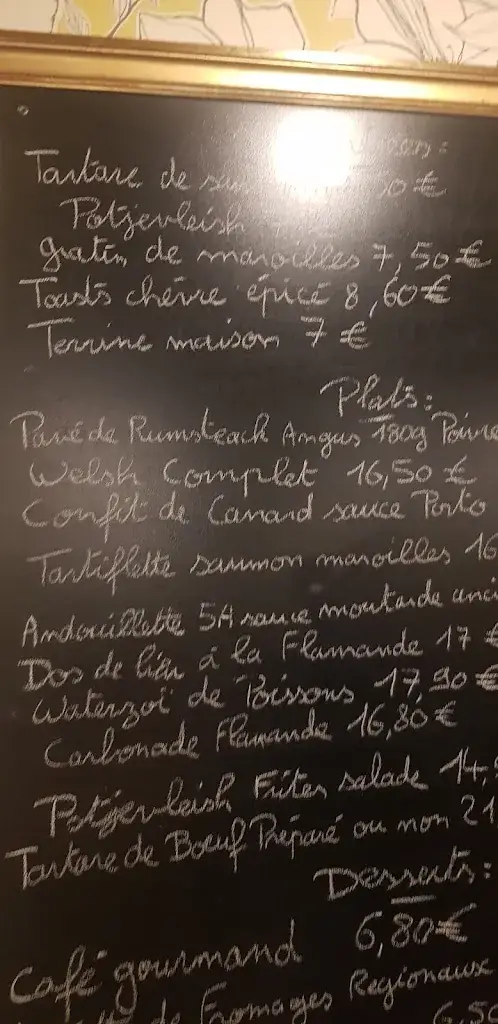 Tartare de
Potjevleish
gratin de maroilles 7,50 €
Toasts chèvre épicé 8,60€
Terrine maison 7 €
Plats:
Pavé de Rumsteack Angus 180g Poivre
Welsh Complet 16,50 €
Confit de Canard sauce Porto
Tartiflette saumon maroilles 16
Andouillette 5A sauce moutarde anci
Dos de lieu à la Flamande 17 €
Waterzoï de Poissons 17,90 €
Carbonade Flamande 16,80 €
Potjevleish Frites salade 14,
Tartare de Boeuf Préparé ou non 21
Desserts:
Café gourmand 6,80€
de Fromages Regionaux
6,50